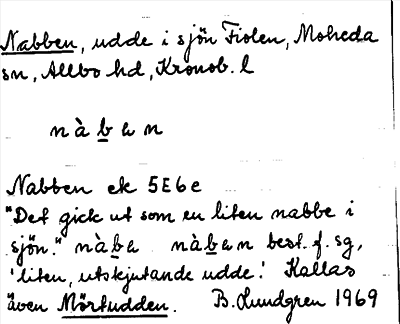 Nabben, udde i sjön Fiolen, Moheda
sn, Allbo hd, Kronob. l
nàben
Nabben ek 5E6e
"Det gick ut som en liten nabbe i
sjön." nàbe nàben best. f. sg,
'liten, utskjutande udde'. Kallas
även Mörtudden. B. Lundgren 1969